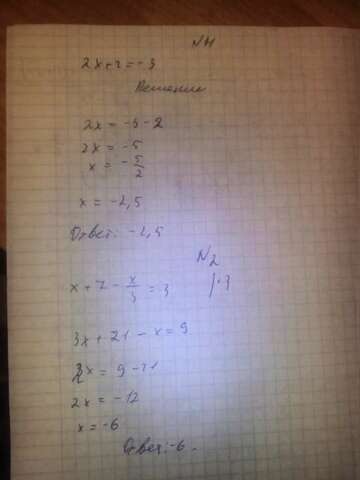 N1
2x+2=-3
Решение
2x = -3-2
2x = -5
x = -5/2
x = -2,5
Ответ: -2,5
N2
x+7-x/3=3 |·3
3x+21-x=9
2x = 9-21
2x = -12
x = -6
Ответ: -6.